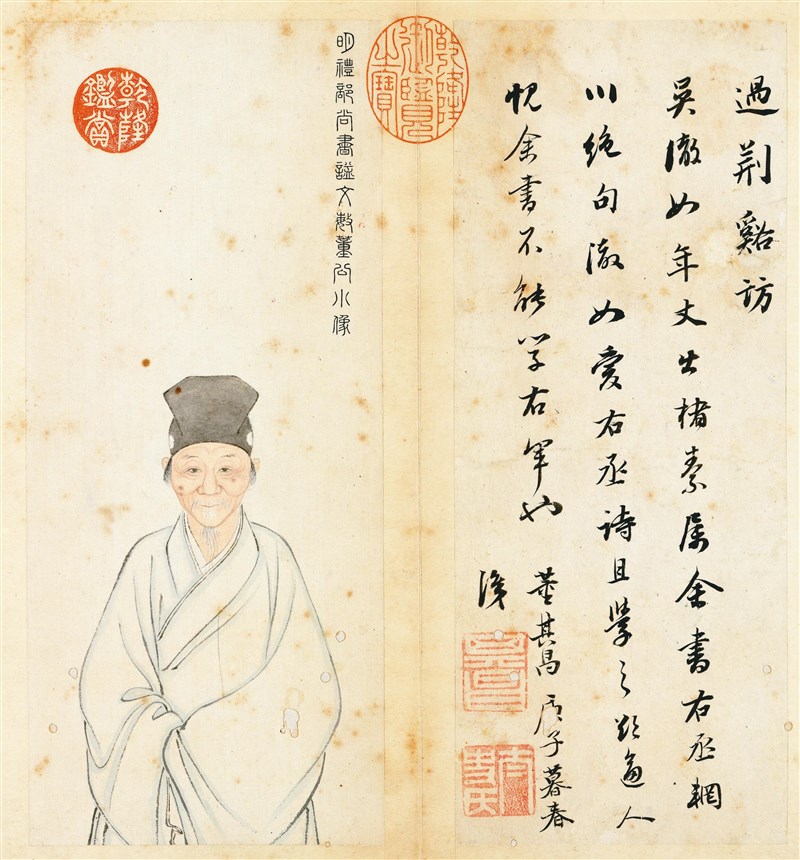 過荊谿訪
吳澈如年丈出楮素屬余書右丞輞
川絕句澈如愛右丞詩且學之欲逼人
愧余書不能學右軍也
董其昌庚子暮春
識
乾隆御覽之寶
明禮部尚書諡文敏董公小像
乾隆鑑賞